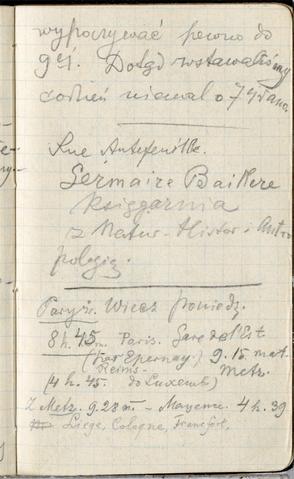 wypoczywać pewno do
9ej. Dotąd wstawaliśmy
codzień niemal o 7 g rano.
Rue Antefeuille.
Germaire Baillere
księgarnia
z Natur. Histor i Antro
pologią.
Paryż. Wiecz poniedz.
8 h. 45 m. Paris. Gare de l'Est
(par Epernay) 9. 15. mat.
Reims. Metz.
(4 h. 45. do Luxemb)
Z Metz 9.28 m. – Mayence 4 h. 39
Liege, Cologne, Francfort,